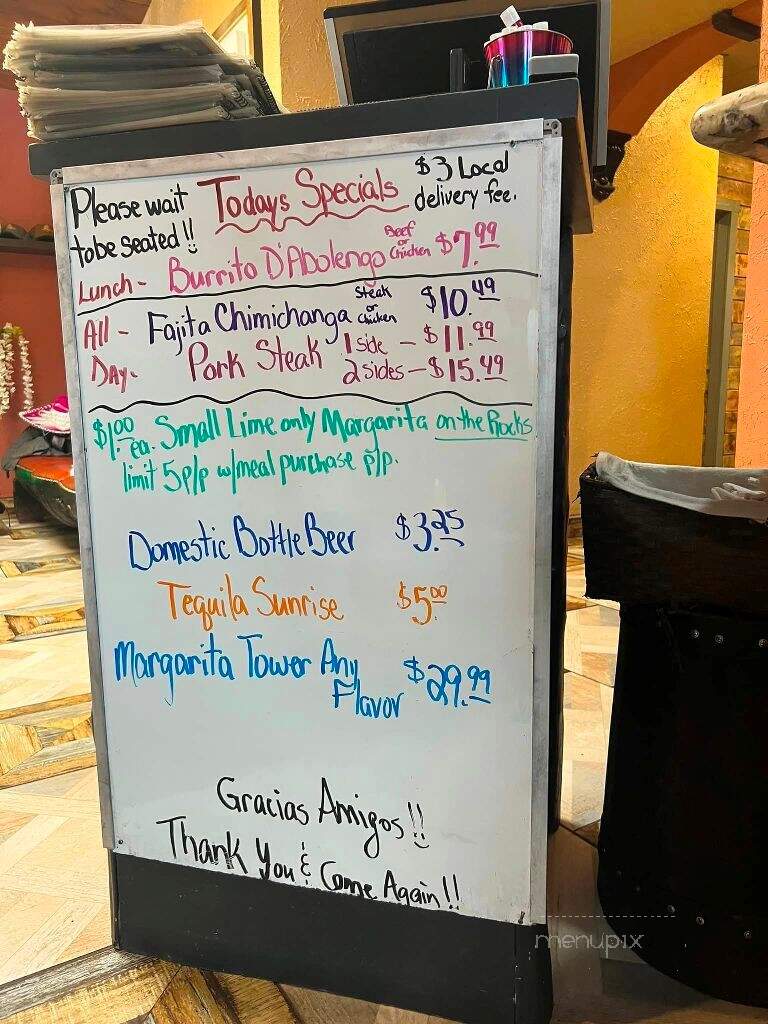 Please wait
tobe seated!!
Todays Specials
$3 Local
delivery fee.
Lunch - Burrito D'Abolengo Beef or Chicken $7.99
All Day - Fajita Chimichanga Steak or Chicken $10.49
Pork Steak 1 side - $11.99
2 sides - $15.49
$1.00 ea. Small Lime only Margarita on the Rocks
limit 5 p/p w/meal purchase p/p.
Domestic Bottle Beer $3.25
Tequila Sunrise $5.00
Margarita Tower Any
Flavor $29.99
Gracias Amigos!!
Thank You & Come Again!!
menupix